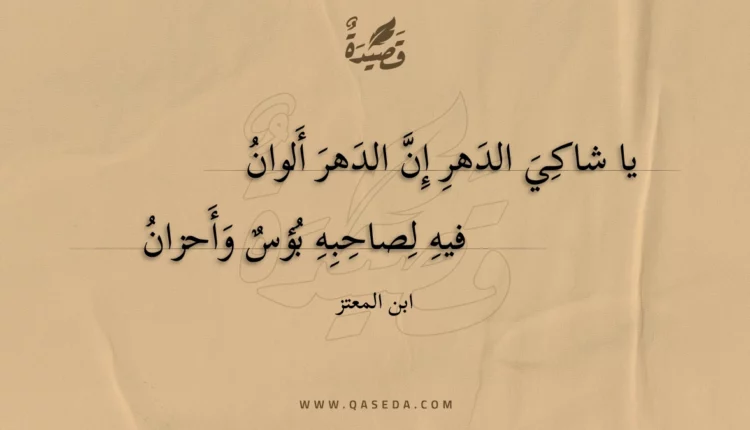 قَصِيدَةٌ
يا شاكِيَ الدَهرِ إِنَّ الدَهرَ أَلوانُ
فيهِ لِصاحِبِهِ بُؤسٌ وَأَحزانُ
ابن المعتز
WWW.QASEDA.COM